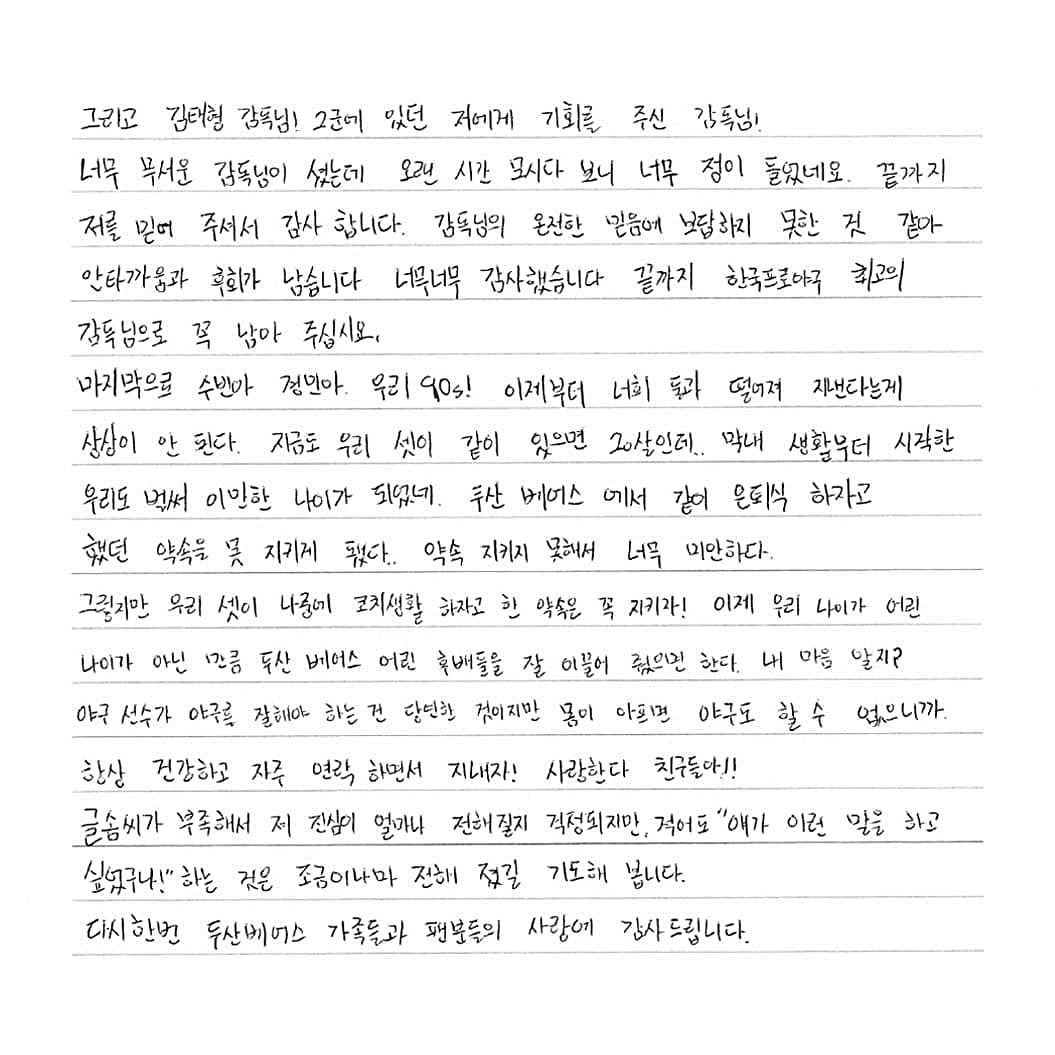 그리고 김태형 감독님! 2군에 있던 저에게 기회를 주신 감독님!
너무 무서운 감독님이 셨는데 오랜 시간 모시다 보니 너무 정이 들었네요. 끝까지
저를 믿어 주셔서 감사 합니다. 감독님의 온전한 믿음에 보답하지 못한 것 같아
안타까움과 후회가 남습니다 너무너무 감사했습니다 끝까지 한국프로야구 최고의
감독님으로 꼭 남아 주십시요.
마지막으로 수빈아 경민아. 우리 90s! 이제부터 너희 둘과 떨어져 지낸다는게
상상이 안 된다. 지금도 우리 셋이 같이 있으면 20살인데.. 막내 생활부터 시작한
우리도 벌써 이만한 나이가 되었네. 두산 베어스 에서 같이 은퇴식 하자고
했던 약속을 못 지키게 됐다.. 약속 지키지 못해서 너무 미안하다.
그렇지만 우리 셋이 나중에 코치생활 하자고 한 약속은 꼭 지키자! 이제 우리 나이가 어린
나이가 아닌 만큼 두산 베어스 어린 후배들을 잘 이끌어 줬으면 한다. 내 마음 알지?
야구 선수가 야구를 잘해야 하는 건 당연한 것이지만 몸이 아프면 야구도 할 수 없으니까.
항상 건강하고 자주 연락 하면서 지내자! 사랑한다 친구들아!!
글솜씨가 부족해서 제 진심이 얼마나 전해질지 걱정되지만, 적어도 "얘가 이런 말을 하고
싶었구나!" 하는 것은 조금이나마 전해 졌길 기도해 봅니다.
다시한번 두산베어스 가족들과 팬분들의 사랑에 감사드립니다.